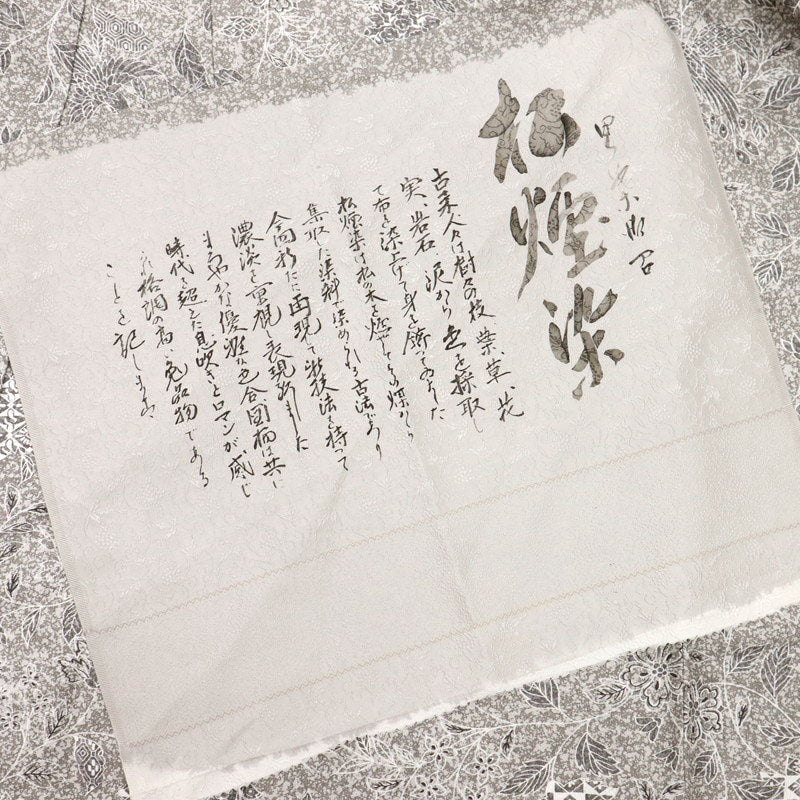 松煙染
古来人々は樹々の枝、葉、草、花
実、岩石、泥から色を採取し
て布を染上げて身を飾ってゐました
松煙染は松の木を燃やしその煤から
集収した染料で染められる古法であり
今回新たに再現して新技法を持って
濃淡を重視し表現致しました
まろやかな優雅な色合図柄は共に
時代を超えた息吹きとロマンが感じ
られ格調の高い逸品物である
ことを記します